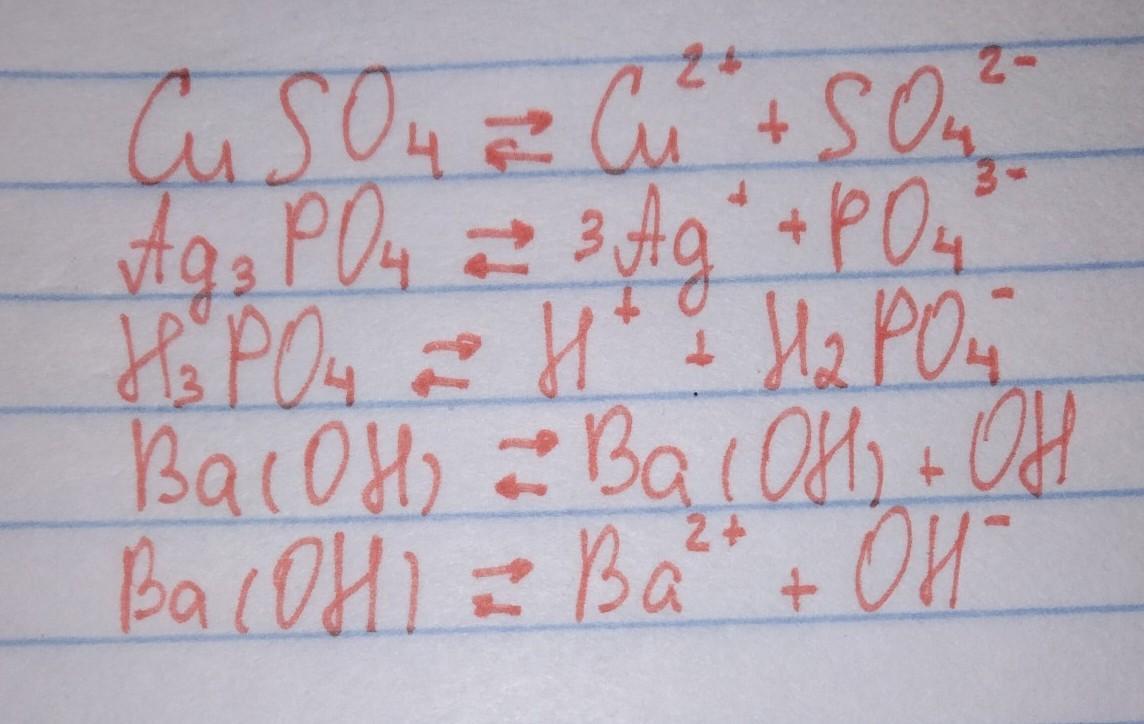 CuSO₄ ⇄ Cu²⁺ + SO₄²⁻
Ag₃PO₄ ⇄ 3Ag⁺ + PO₄³⁻
H₃PO₄ ⇄ H⁺ + H₂PO₄⁻
Ba(OH) ⇄ Ba(OH) + OH
Ba(OH) ⇄ Ba²⁺ + OH⁻